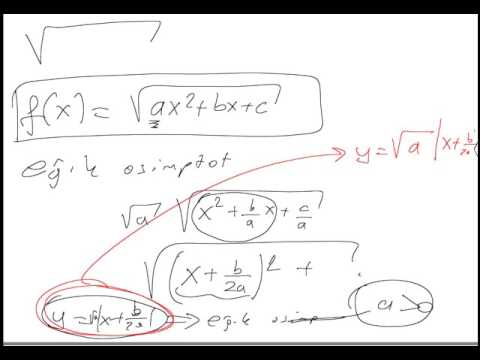 √
f(x) = √ax²+bx+c
eğik asimptot
y = √a |x+b/2a|
√a √x² + b/a x + c/a
√(x + b/2a)² +
y = √a|x+b/2a| → eğik asimp a>0